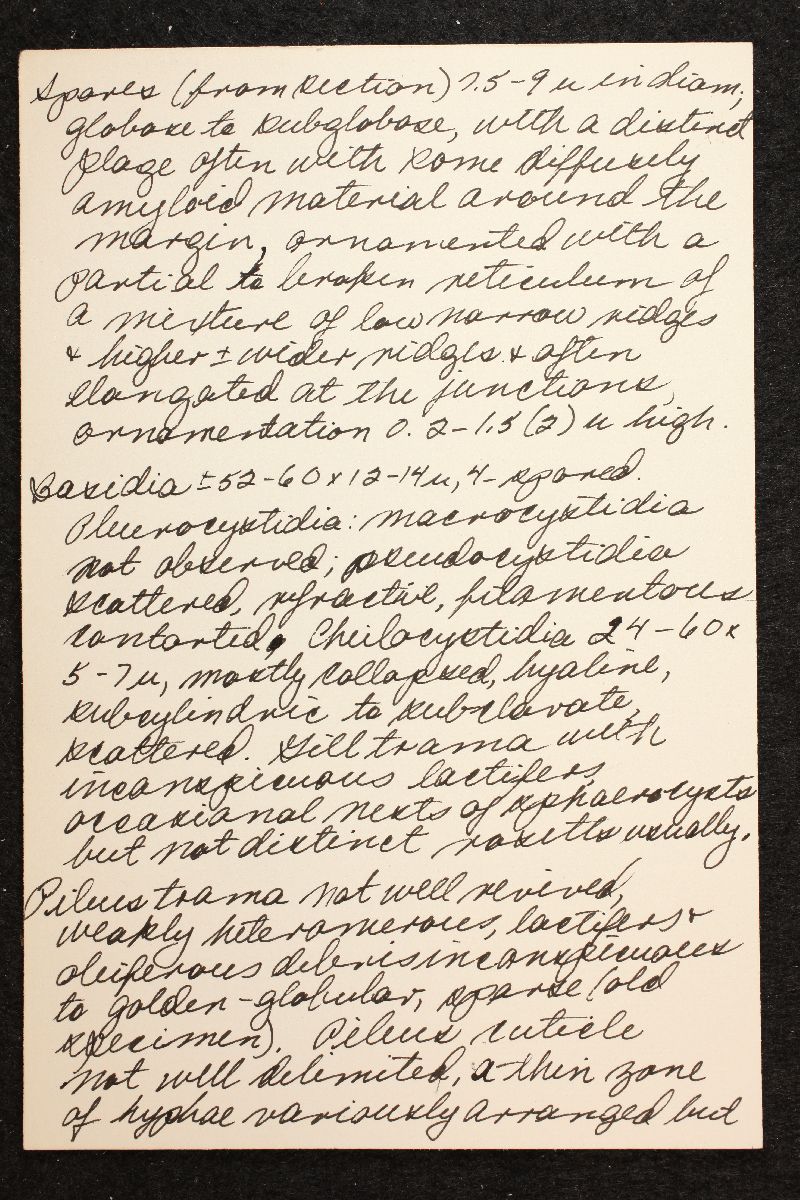 Spores (from section) 7.5-9 u in diam;
globose to subglobose, with a distinct
plage often with some diffusely
amyloid material around the
margin, ornamented with a
partial to broken reticulum of
a mixture of low narrow ridges
& higher ± wider ridges & often
elongated at the junctions,
ornamentation 0.2-1.5(2) u high.
Basidia ±52-60 x 12-14u, 4-spored.
Pleurocystidia: macrocystidia
not observed; pseudocystidia
scattered, refractive, filamentous
contorted. Cheilocystidia 24-60x
5-7u, mostly collapsed, hyaline,
subcylindric to subclavate,
scattered. Gill trama with
inconspicuous lactifers,
occasional nests of sphaerocysts
but not distinct rosetts usually.
Pileus trama not well revived,
weakly heteromerous, lactifers &
oleiferous debris inconspicuous
to golden-globular, sparse (old
specimen). Pileus cuticle
not well delimited, a thin zone
of hyphae variously arranged but